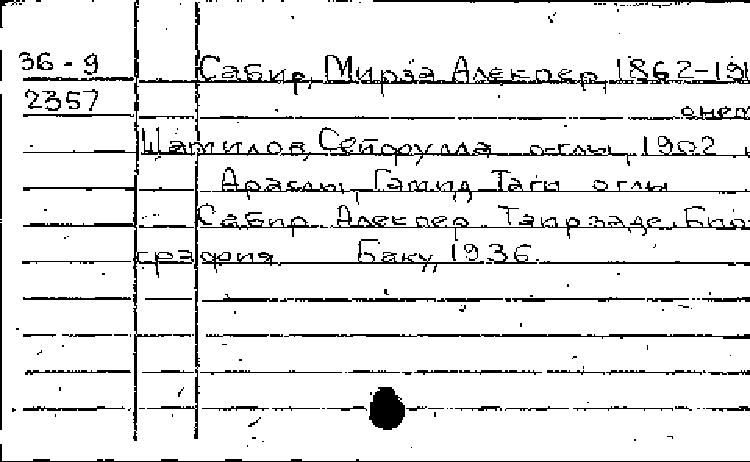 36-9 Сабир, Мирза Алекпер, 1862-191
2357
Шамилов, Сейфулла оглы, 1902
Араслы, Гамид Таги оглы
Сабир Алекпер Таирзаде. Био-
графия Баку, 1936.